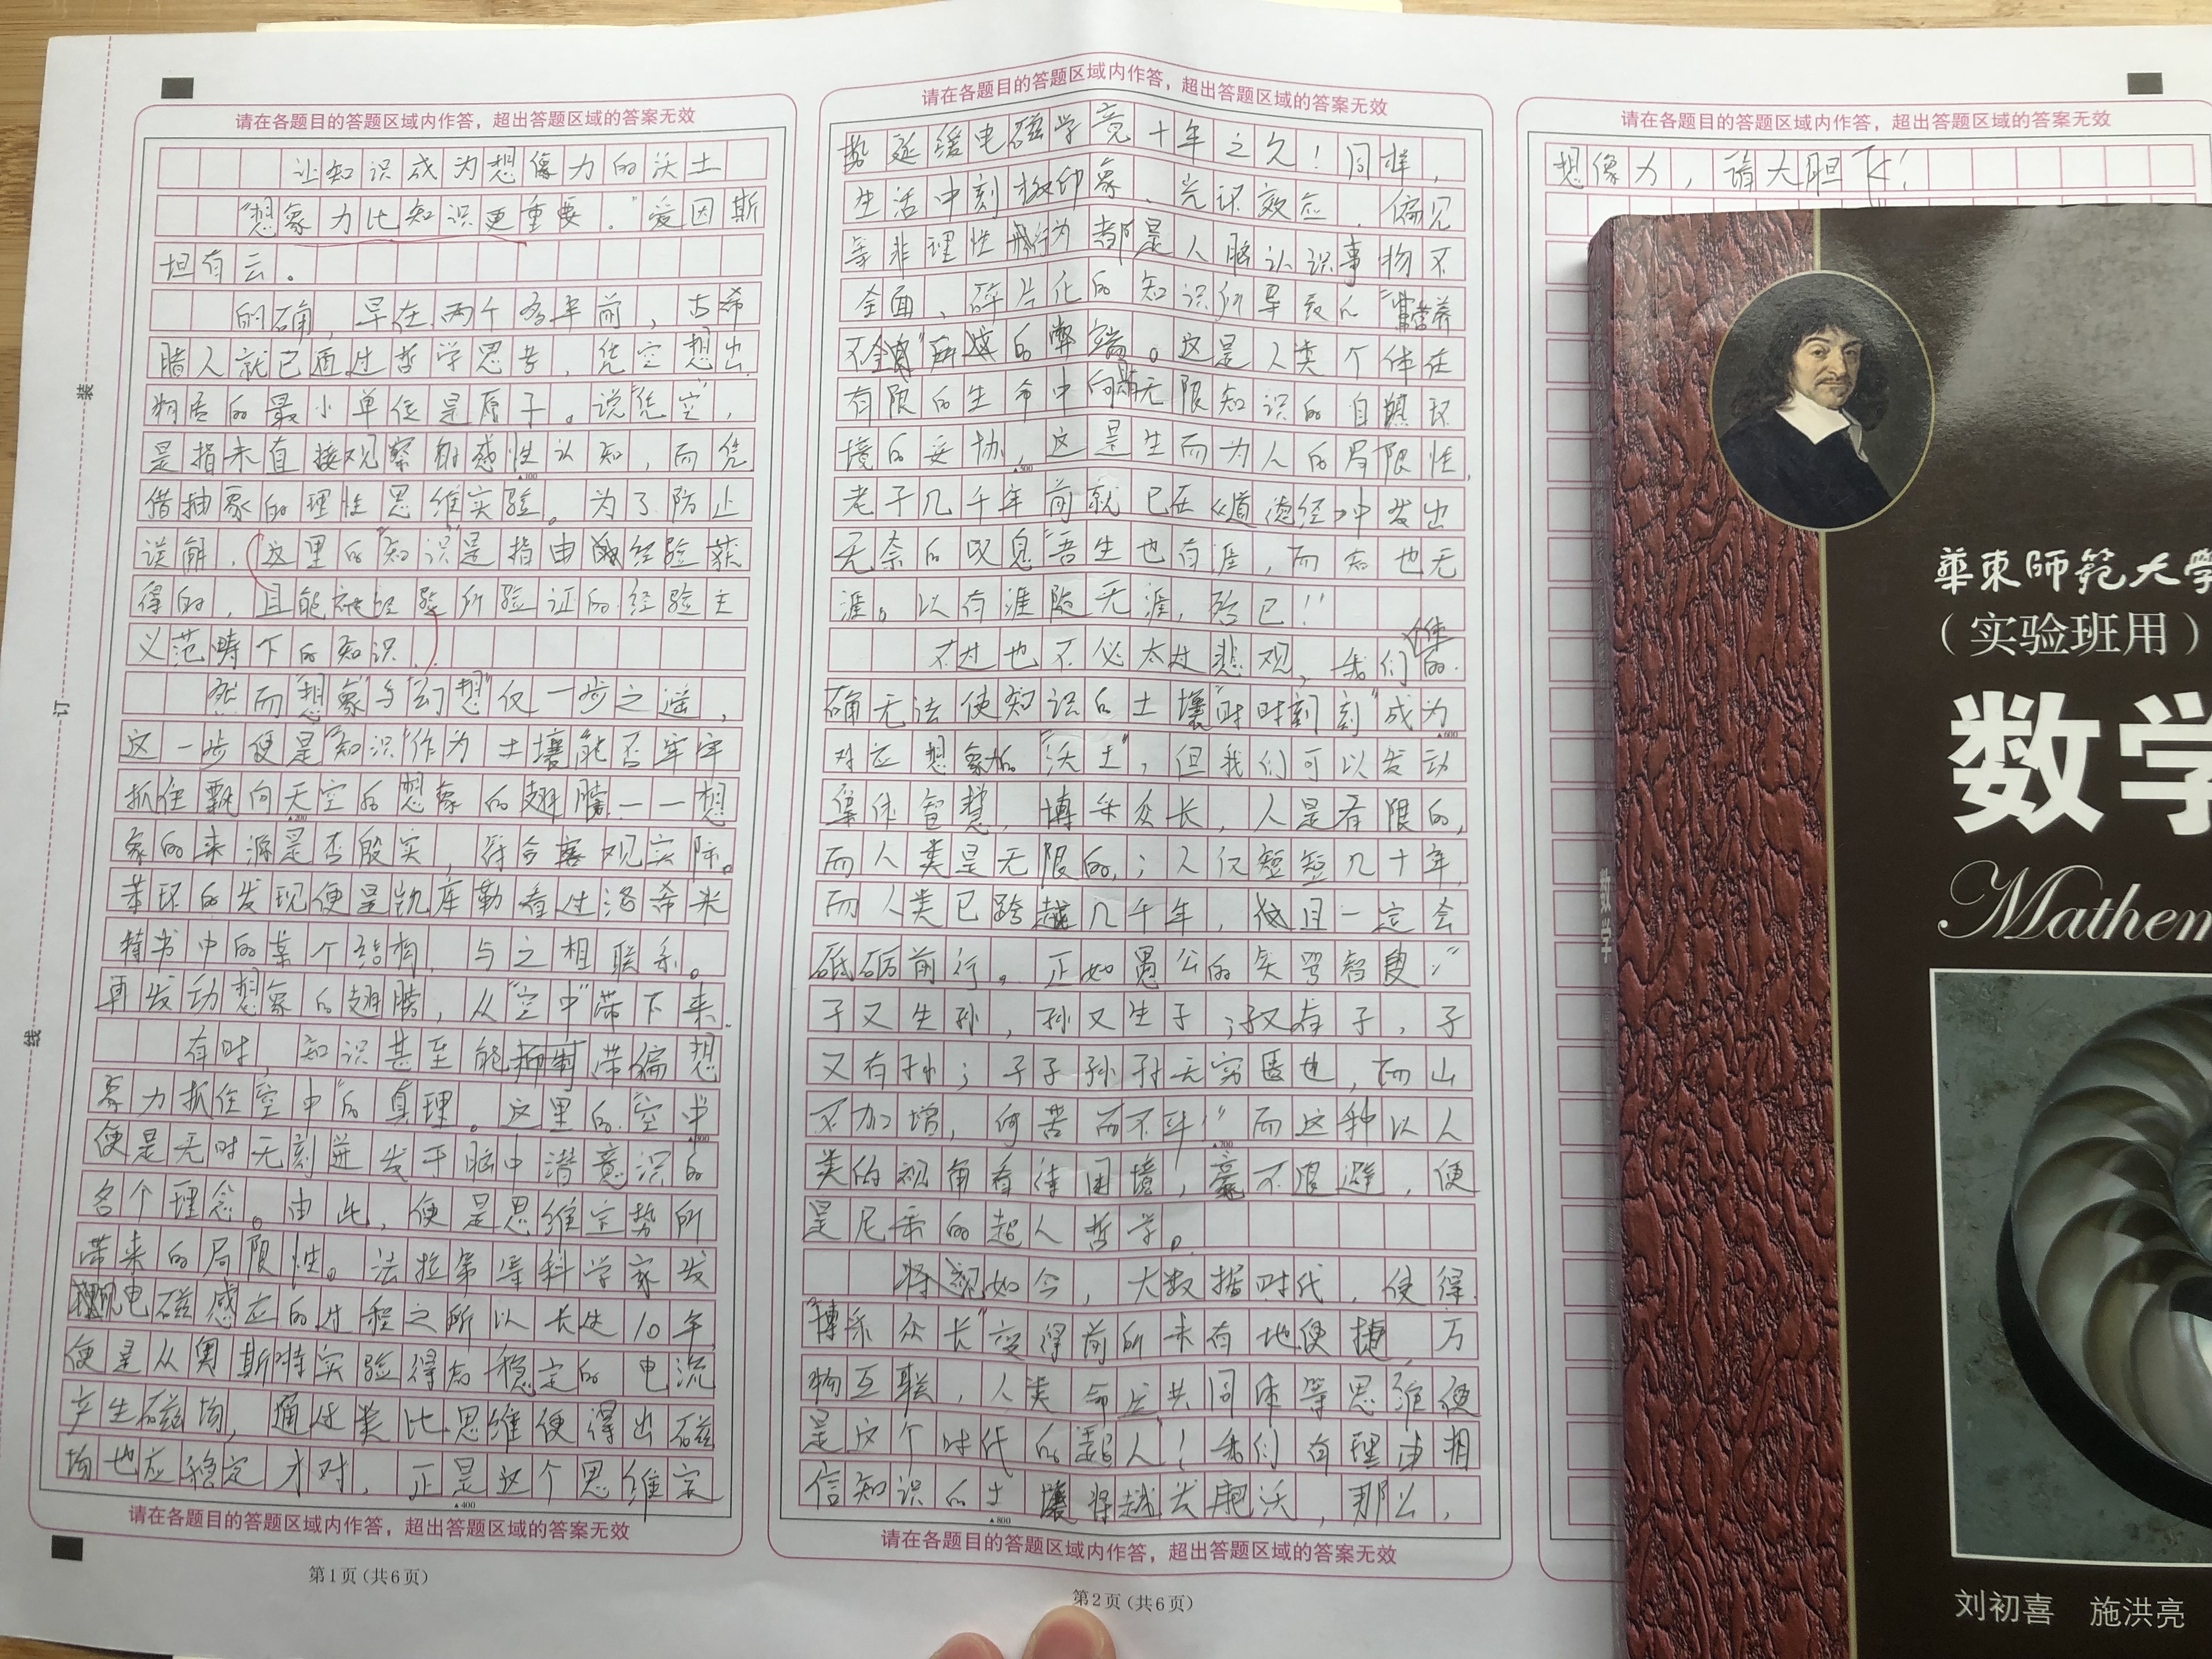 请在各题目的答题区域内作答，超出答题区域的答案无效
让知识成为想像力的沃土
"想象力比知识更重要。"爱因斯
坦有云。
的确，早在两个多年前，古希
腊人就已通过哲学思考，凭空想出
物质的最小单位是原子。说"凭空"，
是指未直接观察的感性认知，而凭
借抽象的理性思维实验。为了防止
误解，这里的"知识"是指由经验获
得的，且能被经验所验证的经验主
义范畴下的知识。
然而"想象"与"幻想"仅一步之遥，
这一步便是"知识"作为土壤能否牢牢
抓住飘向天空的想象的翅膀——想
象的来源是否殷实，符合客观实际。
苯环的发现便是凯库勒看过洛希米
特书中的某个结构，与之相联系。
再发动想象的翅膀，从"空中"带下来。
有时，知识甚至能抑制带偏想
象力抓住"空中"的真理。这里的"空中"
便是无时无刻迸发于脑中潜意识的
各个理念。由此，便是思维定势所
带来的局限性。法拉第等科学家发
现电磁感应的过程之所以长达10年，
便是从奥斯特实验得知稳定的电流
产生磁场，通过类比思维便得出磁
场也应稳定才对，正是这个思维定
请在各题目的答题区域内作答，超出答题区域的答案无效
第1页(共6页)
请在各题目的答题区域内作答，超出答题区域的答案无效
势延缓电磁学竟十年之久！同样，
生活中刻板印象、光环效应、偏见
等非理性行为都是人脑认识事物不
全面，碎片化的知识所导致的"营养
不全"所致的弊端。这是人类个体在
有限的生命中向无限知识的自然环
境的妥协，这是生而为人的局限性，
老子几千年前就已在《道德经》中发出
无奈的叹息"吾生也有涯，而知也无
涯。以有涯随无涯，殆已！"
不过也不必太过悲观，我们个体的
确无法使知识的土壤"时时刻刻"成为
对应想象的"沃土"，但我们可以发动
集体智慧，博采众长，人是有限的，
而人类是无限的；人仅短短几十年，
而人类已跨越几千年，并且一定会
砥砺前行。正如愚公的笑骂智叟："
子又生孙，孙又生子；子又有子，子
又有孙；子子孙孙无穷匮也，而山
不加增，何苦而不平！"而这种以人
类的视角看待困境，毫不退避，便
是尼采的超人哲学。
如今，大数据时代，使得
"博采众长"变得前所未有地便捷，万
物互联，人类命运共同体等思维便
是这个时代的"超人"！我们有理由相
信知识的土壤将越发肥沃，那么，
请在各题目的答题区域内作答，超出答题区域的答案无效
第2页(共6页)
请在各题目的答题区域内作答，超出答题区域的答案无效
想像力，请大胆飞！
装
订
线
数学
華東師範大學
(实验班用)
数学
Mathem
刘初喜 施洪亮